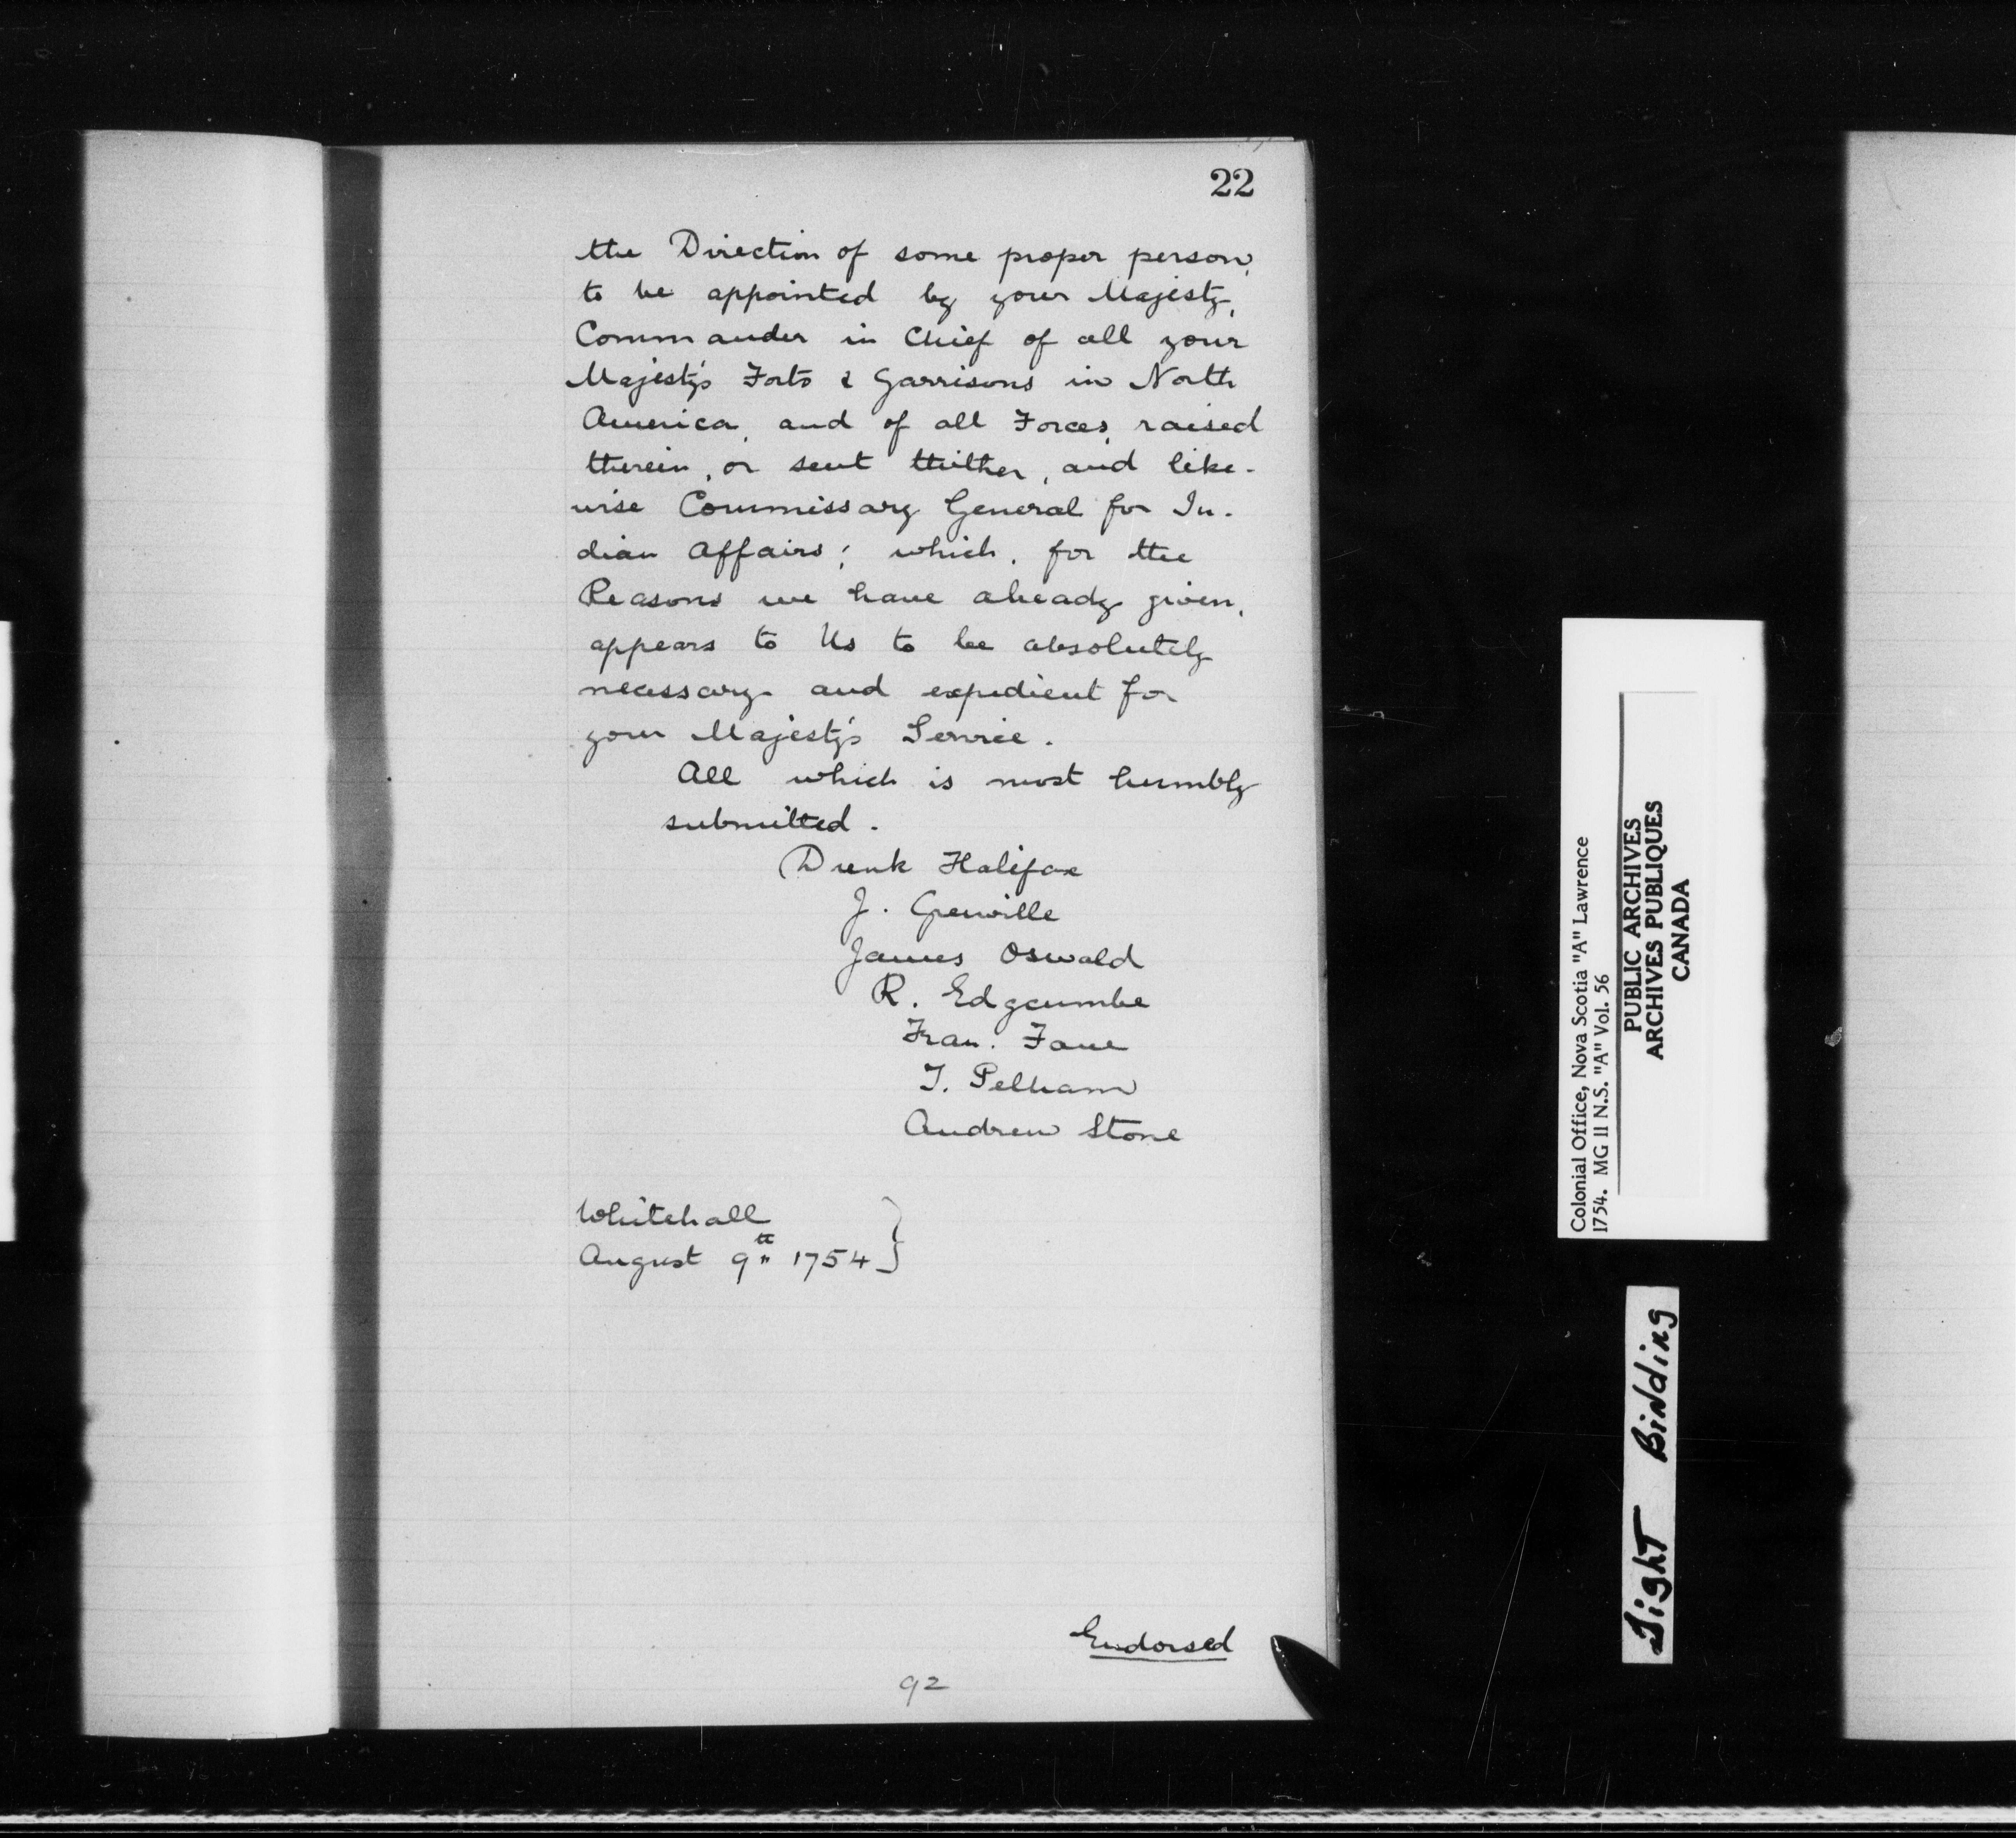 22
the Direction of some proper person,
to be appointed by your Majesty,
Commander in Chief of all your
Majesty's Forts & Garrisons in North
America, and of all Forces, raised
therein, or sent thither, and like-
wise Commissary General for In-
dian Affairs; which, for the
Reasons we have already given,
appears to Us to be absolutely
necessary and expedient for
your Majesty's Service.
All which is most humbly
submitted.
Dunk Halifax
J. Grenville
James Oswald
R. Edgcumbe
Fran. Fane
T. Pelham
Andrew Stone
Whitehall
August 9th 1754 }
Endorsed
92
Colonial Office, Nova Scotia "A" Lawrence
1754. MG 11 N.S. "A" Vol. 56
PUBLIC ARCHIVES
ARCHIVES PUBLIQUES
CANADA
Tight Binding